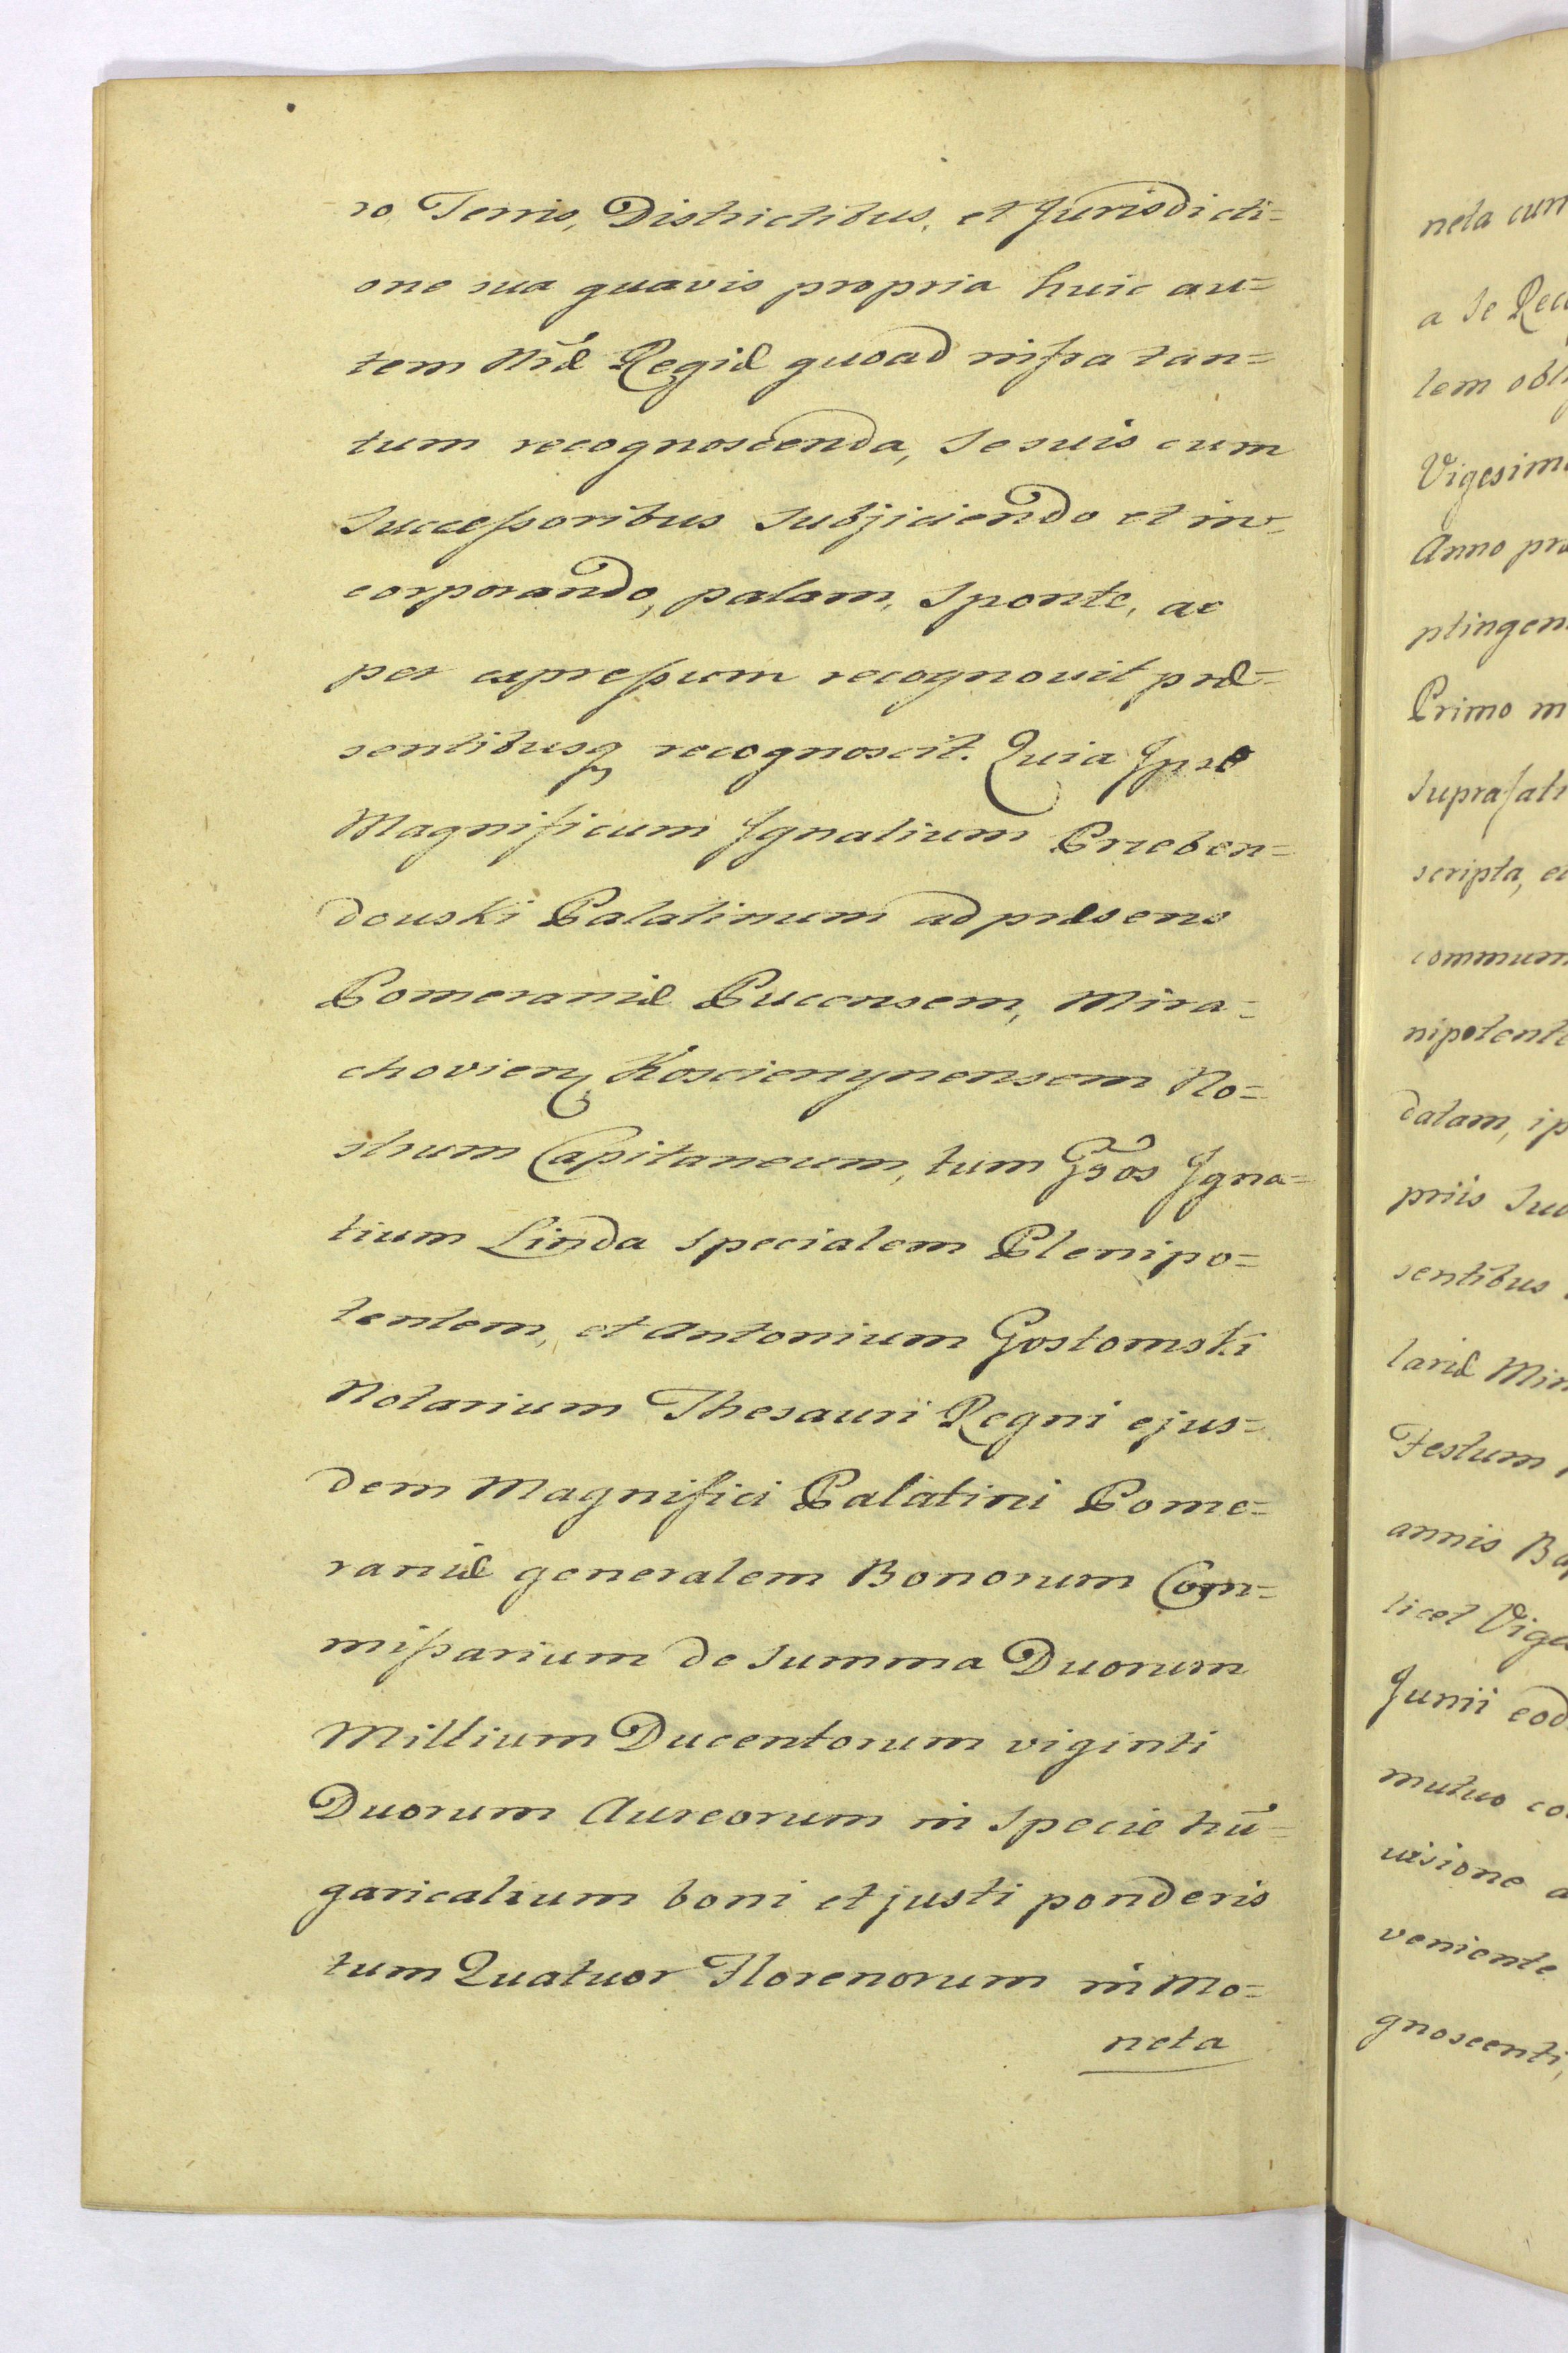 ro Terris, Districtibus, et Jurisdicti=
one sua quavis propria huic au=
tem Nræ Regiæ quoad infra tan=
tum recognoscenda, se suis cum
Successoribus Subjiciendo et in=
corporando, palam, sponte, ac
per expressum recognovit præ=
sentibusq recognoscit. Quia Ipse
Magnificum Ignatium Przeben=
douski Palatinum ad præsens
Pomeraniæ Pucensem, Mira=
chovienq Koscierzynensem No=
strum Capitaneum, tum Gsos Igna=
tium Linda specialem Plenipo=
tentem, et Antonium Gostomski
Notarium Thesauri Regni ejus=
dem Magnifici Palatini Pome=
raniæ generalem Bonorum Com=
missarium de Summa Duorum
Millium Ducentorum viginti
Duorum Aureorum in specie hũ=
garicalium boni et justi ponderis
tum Quatuor Florenorum in Mo=
neta
neta cum
a se Rec
tem obl
Vigesim
Anno pra
ptingen
Primo m
suprafat
scripta, et
commun
nipotente
datam, ip
priis Sub
sentibus
lariæ Min
Festum
annis Bap
licet Vige
Junii eod
mutuo co
visione a
veniente
gnoscenti,